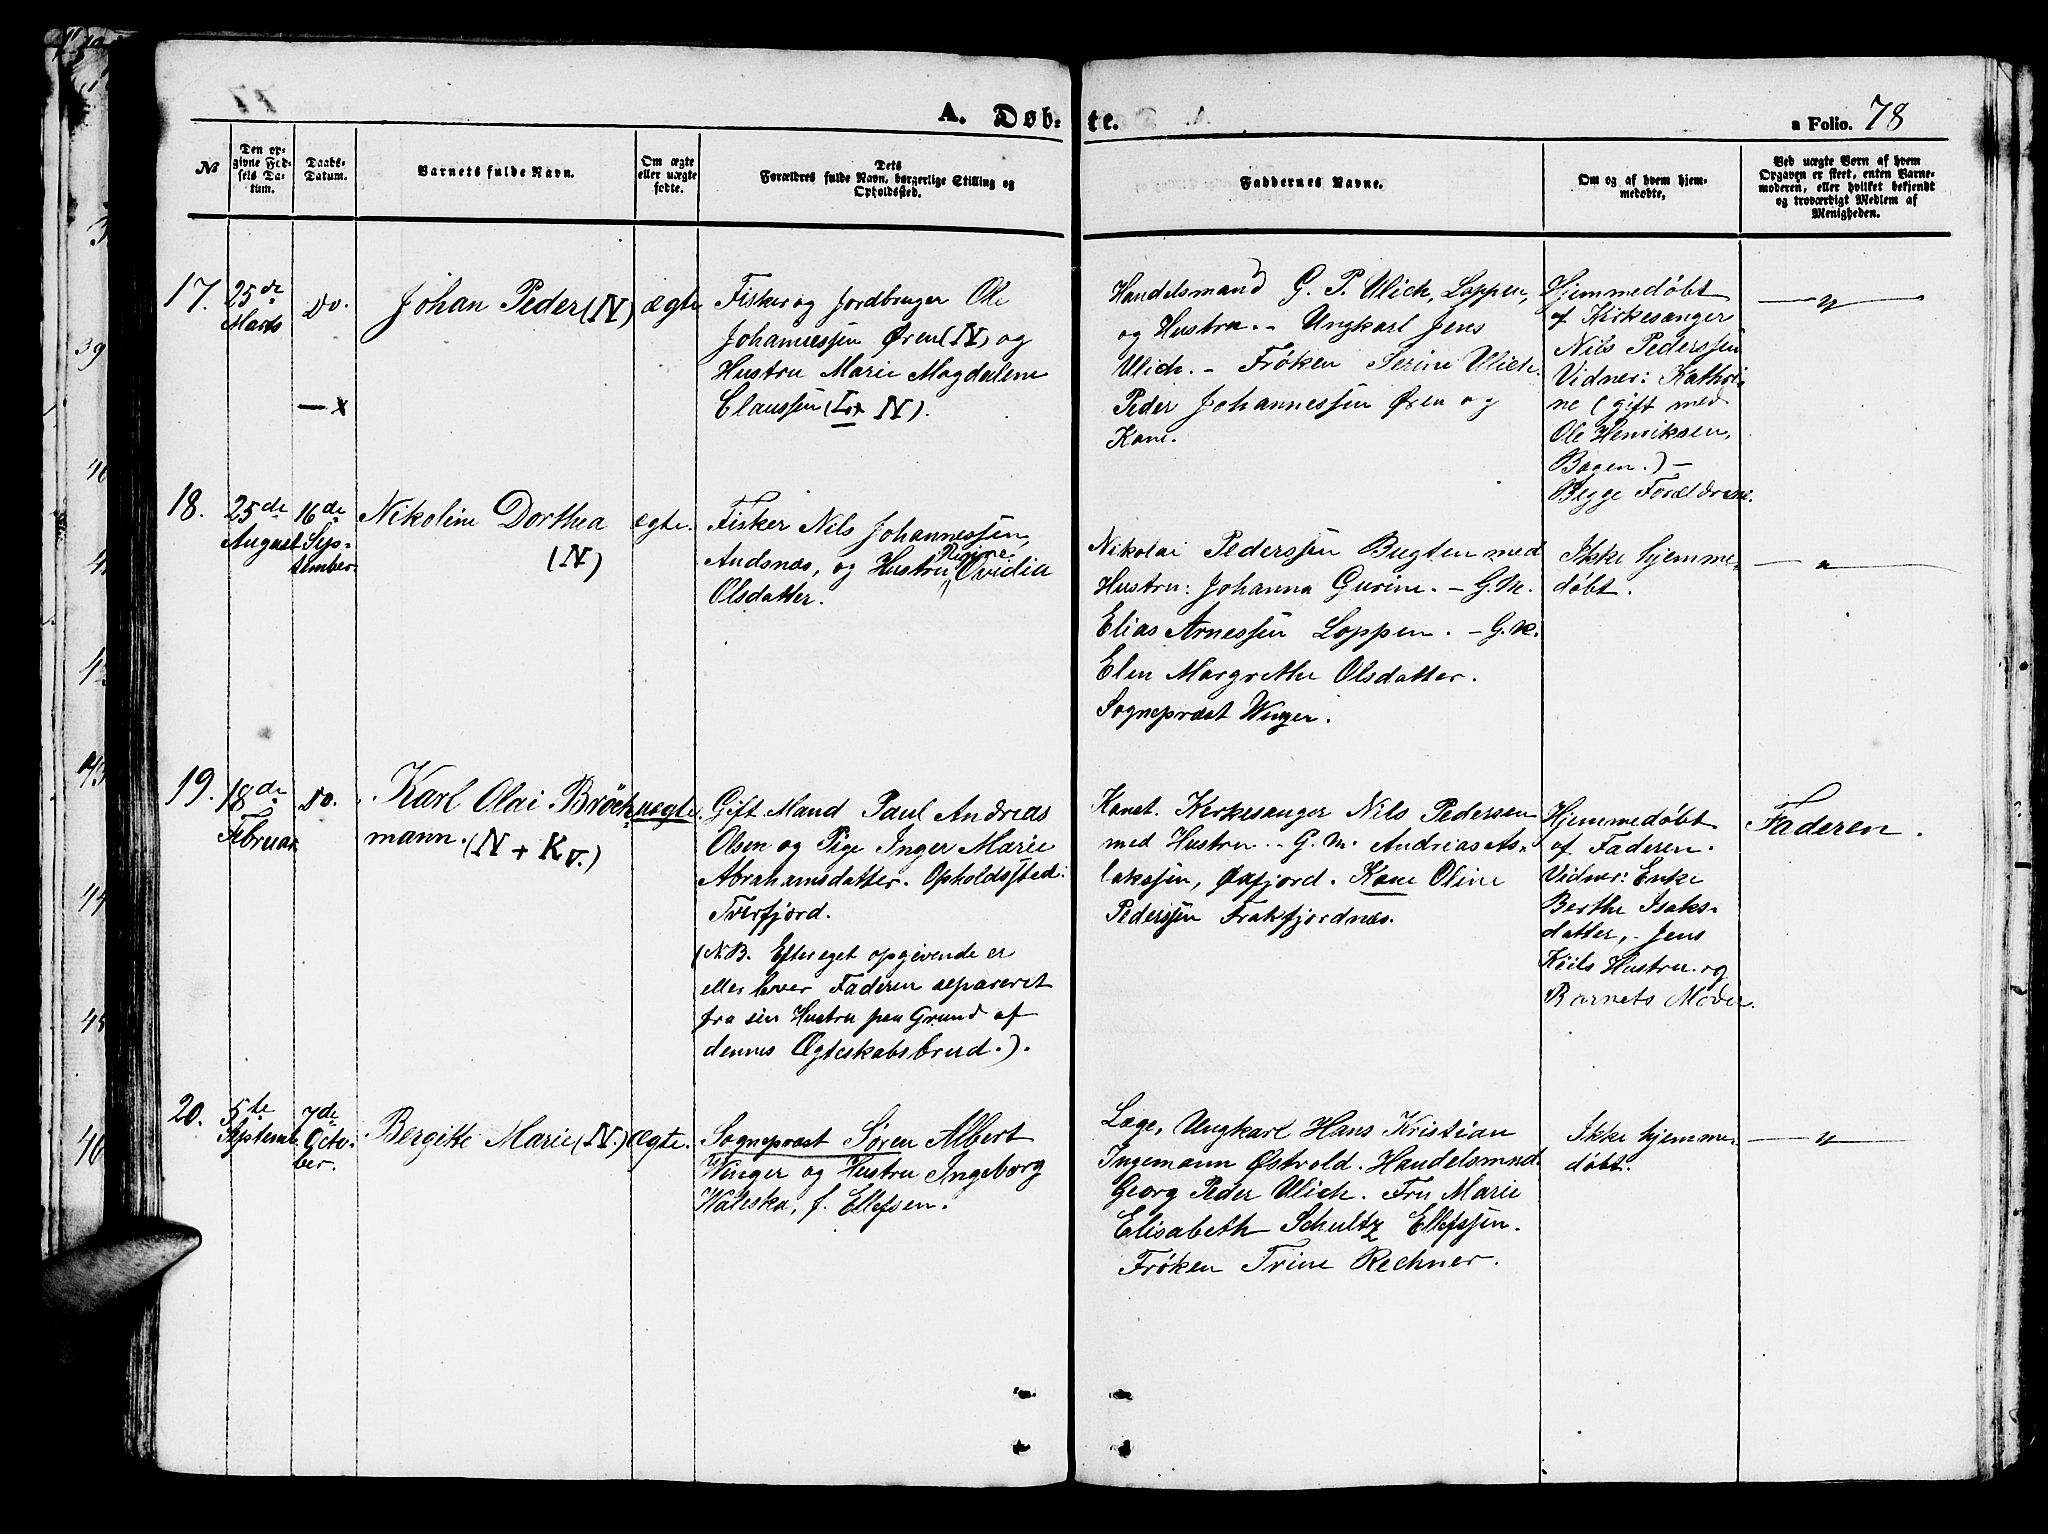 A. Døb-te.
a Folio. 78
№
Den opgivne Fødsels Datum.
Daabs-Datum.
Barnets fulde Navn.
Om ægte eller uægte fødte.
Dets Forældres fulde Navn, borgerlige Stilling og Opholdssted.
Faddernes Navne.
Om og af hvem hjemmedøbte.
Ved uægte Børn af hvem Opgaven er skeet, enten Barnemoderen, eller hvilket bekjendt og troværdigt Medlem af Menigheden.
17.
25de
Marts
Do.
Johan Peder (N)
ægte
Fisker og Jordbruger Ole
Johannessen Øren (N) og
Hustru Marie Magdalene
Claussen (N).
Handelsmand G. P. Ulich, Loppen,
og Hustru. - Ungkarl Jens
Ulich. - Frøken Serine Ulich.
Peder Johannessen Øren og
Kone.
Hjemmedøbt
af Kirkesanger
Nils Pederssen
Vidner: Kathri-
ne (gift med
Ole Henriksen,
Bogen.) -
Begge Forældrene.
18.
25de
August
16de
Sep-
tember.
Nikoline Dorthea
(N)
ægte.
Fisker Nils Johannessen,
Andsnæs, og Hustru Ovidia
Olsdatter.
Nikolai Pederssen Bugten med
Hustru: Johanna Gurine. - G.M.
Elias Arnessen Loppen. - G.K.
Elen Margrethe Olsdatter.
Sogneprest Winger.
Ikke hjemme-
døbt.
19.
18de
Februar
Do.
Karl Olai Bröch-
mann. (N + Kv.)
uægte.
Gift Mand Paul Andreas
Olsen og Pige Inger Marie
Abrahamsdatter. Opholdssted:
Tverfjord.
(N.B. Efter eget opgivende er
eller lever Faderen separeret
fra sin Hustru paa Grund af
dennes Ægteskabsbrud.).
Konst. Kirkesanger Nils Pedersen
med Hustru. - G. M. Andreas As-
lakssen, Øxfjord. Kone Oline
Pederssen Frakfjordnæs.
Hjemmedøbt
af Faderen.
Vidner: Enke
Berthe Isaks-
datter, - Jens
Kiils Hustru og
Barnets Moder.
Faderen.
20.
5te
Septemb.
7de
Octo-
ber.
Bergitte Marie (N.)
Ægte.
Sogneprest Søren Albert
Winger og Hustru Ingeborg
Waleska, f. Ellefsen.
Læge, Ungkarl Hans Kristian
Ingemann Østvold. Handelsmnd.
Georg Peder Ulich. Fru Marie
Elisabeth Schultz Ellefsen.
Frøken Trine Rechner.
Ikke hjemme-
døbt.